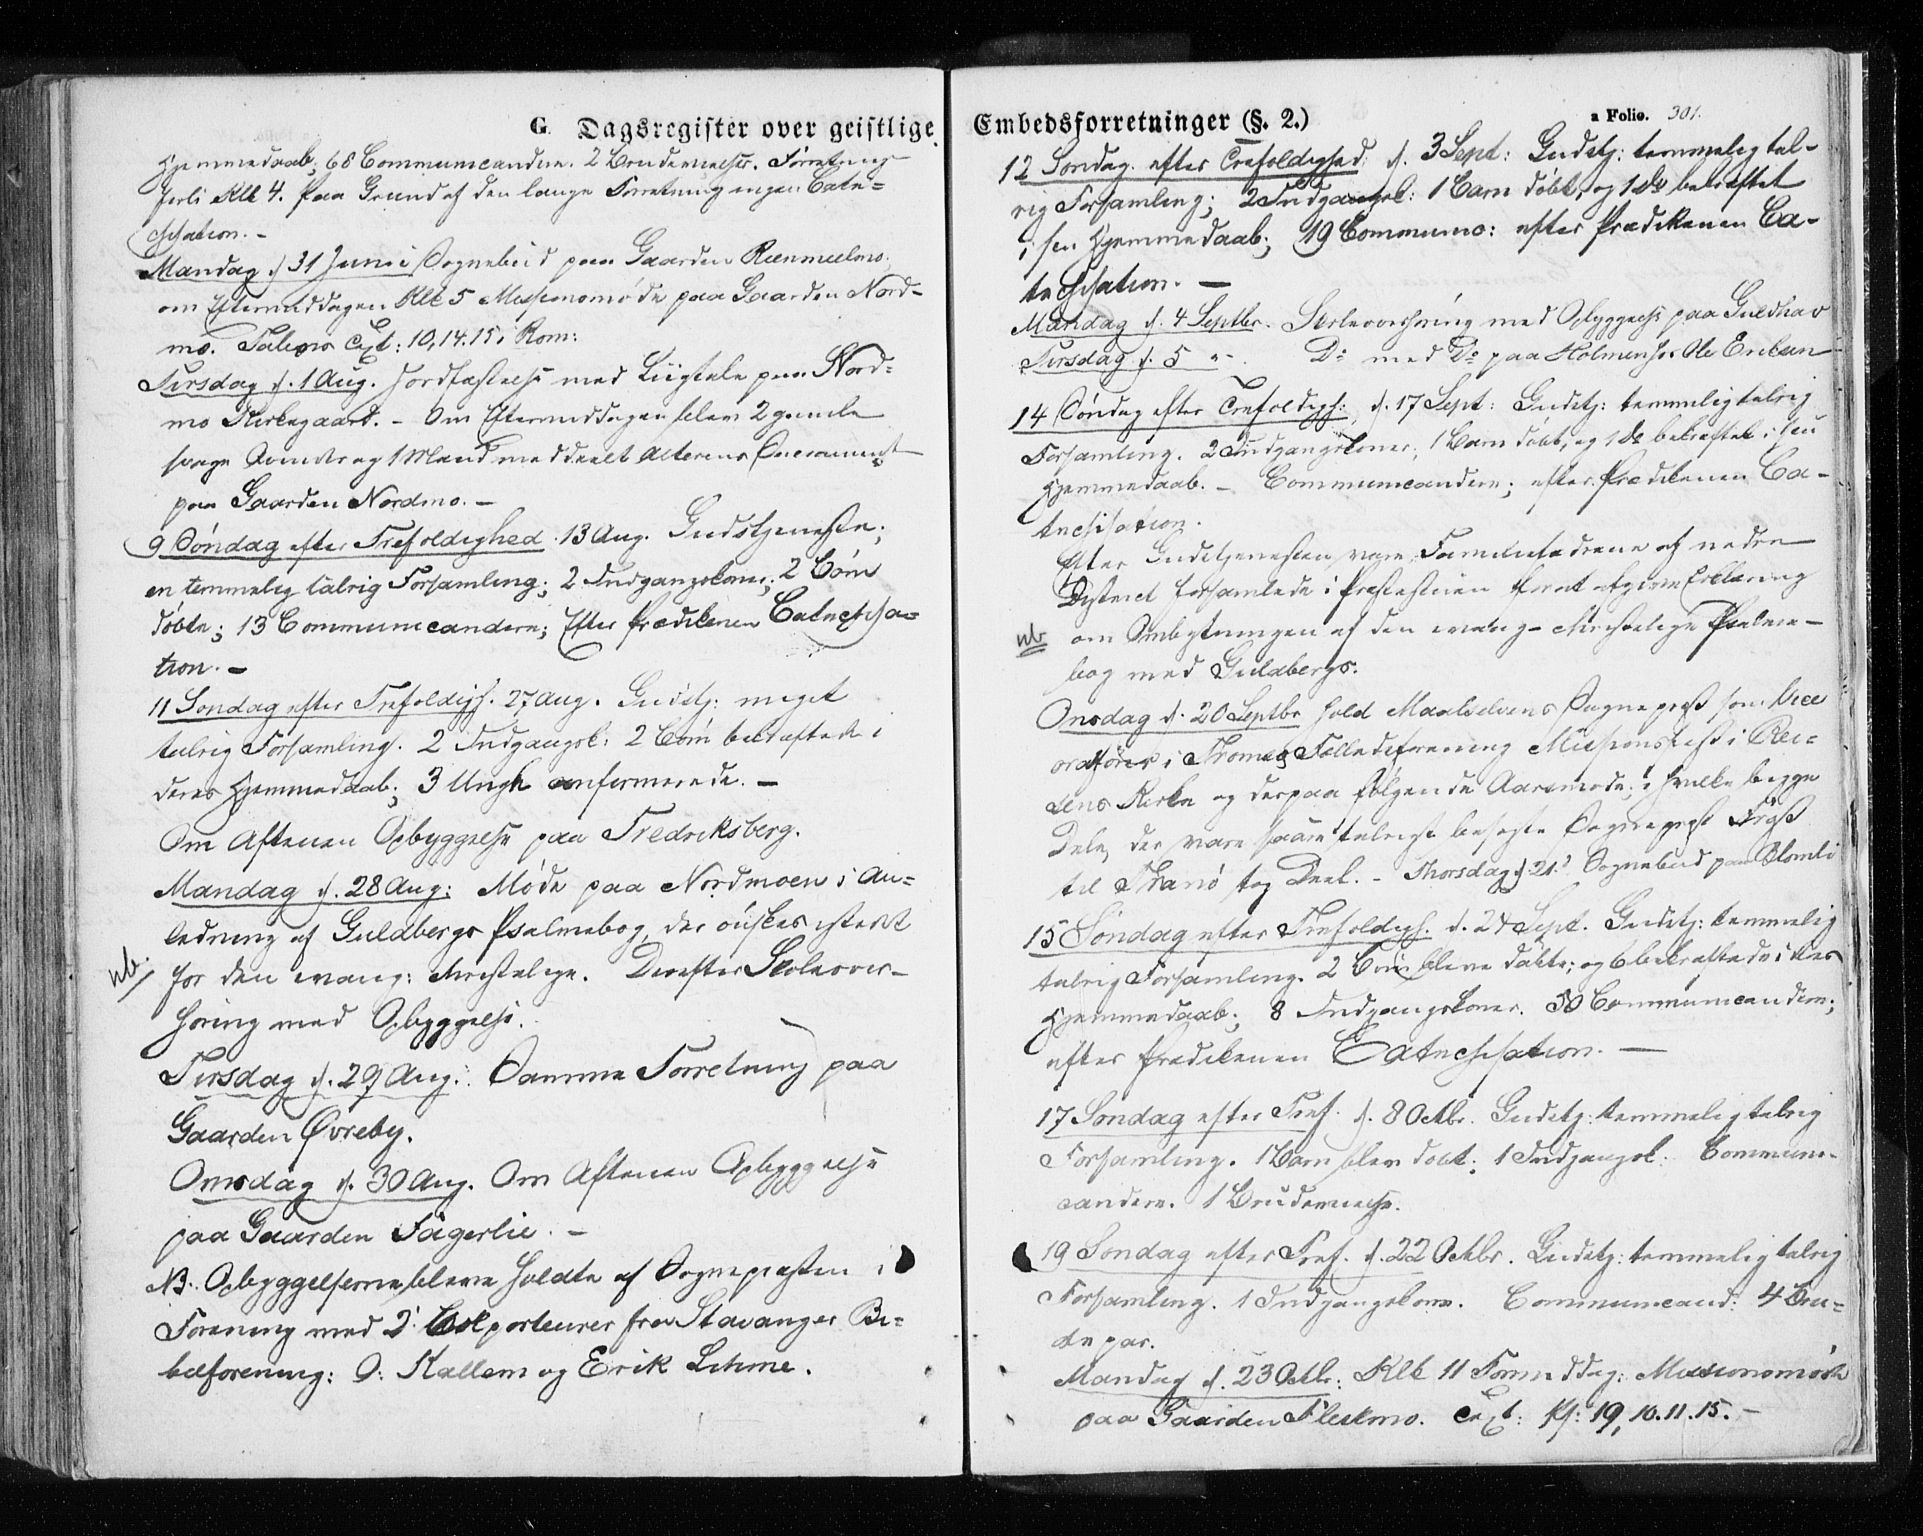 G. Dagsregister over geistlige
Hjemmedaab; 68 Communicandere. 2 Brudevielser. Forretning
forbi Klk 4. Paa Grund af den lange Forretning ingen Cate-
chisation. -
Mandag d. 31 Juni Sognebud paa Gaarden
om Eftermiddagen Klk 5 Missionsmøde paa Gaarden Nord-
mo. Talens Text: 10,14.15. Rom:
Tirsdag d. 1 Aug. Jordfæstelse med Liigtale paa Nord-
mo Kirkegaard. - Om Eftermiddagen blev 2 gamle
svage Qvinder og 1 Mand meddeelt Alterens Sacrament
paa Gaarden Nordmo. -
9 Søndag efter Trefoldighed. 13 Aug. Gudstjeneste;
en temmelig talrig Forsamling; 2 Indgangskoner; 2 Børn
døbte; 13 Communicandere; Efter Prædikenen Catechisa-
tion. -
11 Søndag efter Trefoldigh. 27 Aug. Gudstj: meget
talrig Forsamling. 2 Indgangsk: 2 Børn bekræftede i
deres Hjemmedaab; 3 Unge confirmerede. -
Om Aftenen Opbyggelse paa Fredriksberg.
Mandag d. 28 Aug: Møde paa Nordmoen i An-
ledning af Guldbergs Psalmebog, der ønskes istedet
nb. for den evang: christelige. Derefter Skoleover-
høring med Opbyggelse.
Tirsdag d. 29 Aug: Samme Forretning paa
Gaarden Øvreby.
Onsdag d. 30 Aug. Om Aftenen Opbyggelse
paa Gaarden Fagerlie. -
NB. Opbyggelserne bleve holdte af Sognepresten i
Forening med 2 Colporteurer fra Stavanger Bi-
belforening: O: Kallem og Erik Lihme.
Embedsforretninger (§. 2.)
a Folio. 301.
12 Søndag efter Trefoldighed: d. 3 Sept: Gudstj: temmelig tal-
rig Forsamling; 2 Indgangsk: 1 Barn døbt, og 1 Do bekræftet
i sin Hjemmedaab; 19 Communic: efter Prædikenen Ca-
techisation. -
Mandag d. 4 Septbr. Skoleoverhøring med Opbyggelse paa Guldhav
Tirsdag d. 5 " - Do med Do paa Holmen hos Ole Eriksen
14 Søndag efter Trefoldigh: d. 17 Sept: Gudstj: temmelig talrig
Forsamling. 2 Indgangskoner; 1 Barn døbt, og 1 Do bekræftet i sin
Hjemmedaab. - Communicandere; efter Prædikenen Ca-
techisation.
Efter Gudstjenesten vare Familiefædrene af nedre
District forsamlede i Præstestuen for at afgive Erklæring
nb om Ombytningen af den evang-christelige Psalme-
bog med Guldbergs.
Onsdag d. 20 Septbr hold Maalselvens Sogneprest som Vice
ordfører i Tromsø Fælledsforening Missionsfest i
sens Kirke og derpaa følgende Aarsmøde; i hvilke begge
Dele, der vare saare talrigt besøgte Sogneprest
til Tranø tog Deel. - Thorsdag d. 21. Sognebud paa
15 Søndag efter Trefoldigh. d. 24 Sept. Gudstj: temmelig
talrig Forsamling. 2 Børn bleve døbte; og 6 bekræftede i deres
Hjemmedaab; 8 Indgangskoner. 50 Communicandere;
efter Prædikenen Catechisation. -
17 Søndag efter Tref. d. 8 Octbr. Gudstj: temmelig talrig
Forsamling. 1 Barn blev døbt; 1 Indgangsk: Communi-
candere. 1 Brudevielse.
19 Søndag efter Tref. d. 22 Octbr. Gudstj: temmelig talrig
Forsamling. 1 Indgangskone. Communicand: 4 Bru-
depar.
Mandag d. 23 Octbr: Klk 11 Formiddag: Missionsmøde
paa Gaarden Fleskmo. Text: Ps: 19, 10.11.15. -